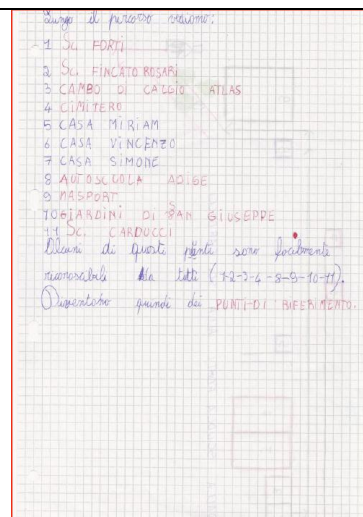 Lungo il percorso vediamo:
1 Sc. FORTI
2 Sc. FINCATO ROSARI
3 CAMBO DI CALGIO ATLAS
4 CIMITERO
5 CASA MIRIAM
6 CASA VINCENZO
7 CASA SIMONE
8 AUTOSCUOLA ADIGE
9 MASPORT
10 GIARDINI DI SAN GIUSEPPE
11 Sc. CARDUCCI
Alcuni di questi punti sono facilmente
riconoscibili da tutti (1-2-3-4-8-9-10-11).
Diventano quindi dei PUNTI DI RIFERIMENTO.